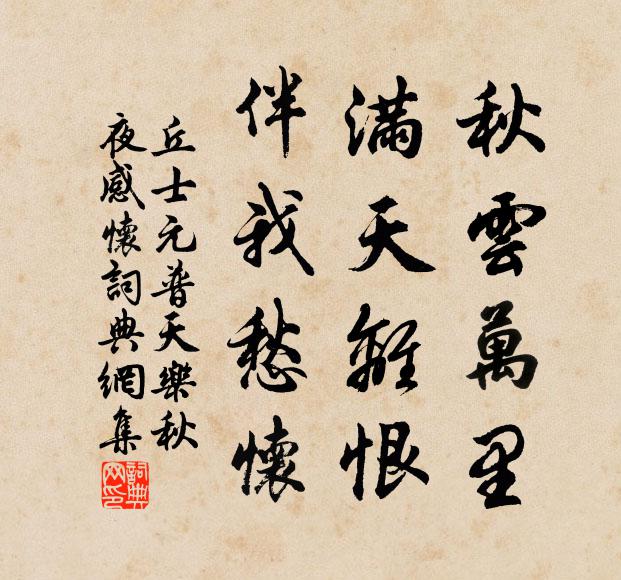 秋雲萬里
滿天離恨
伴我愁懷
丘士元普天樂秋
夜感懷詞典網集
詞典网印